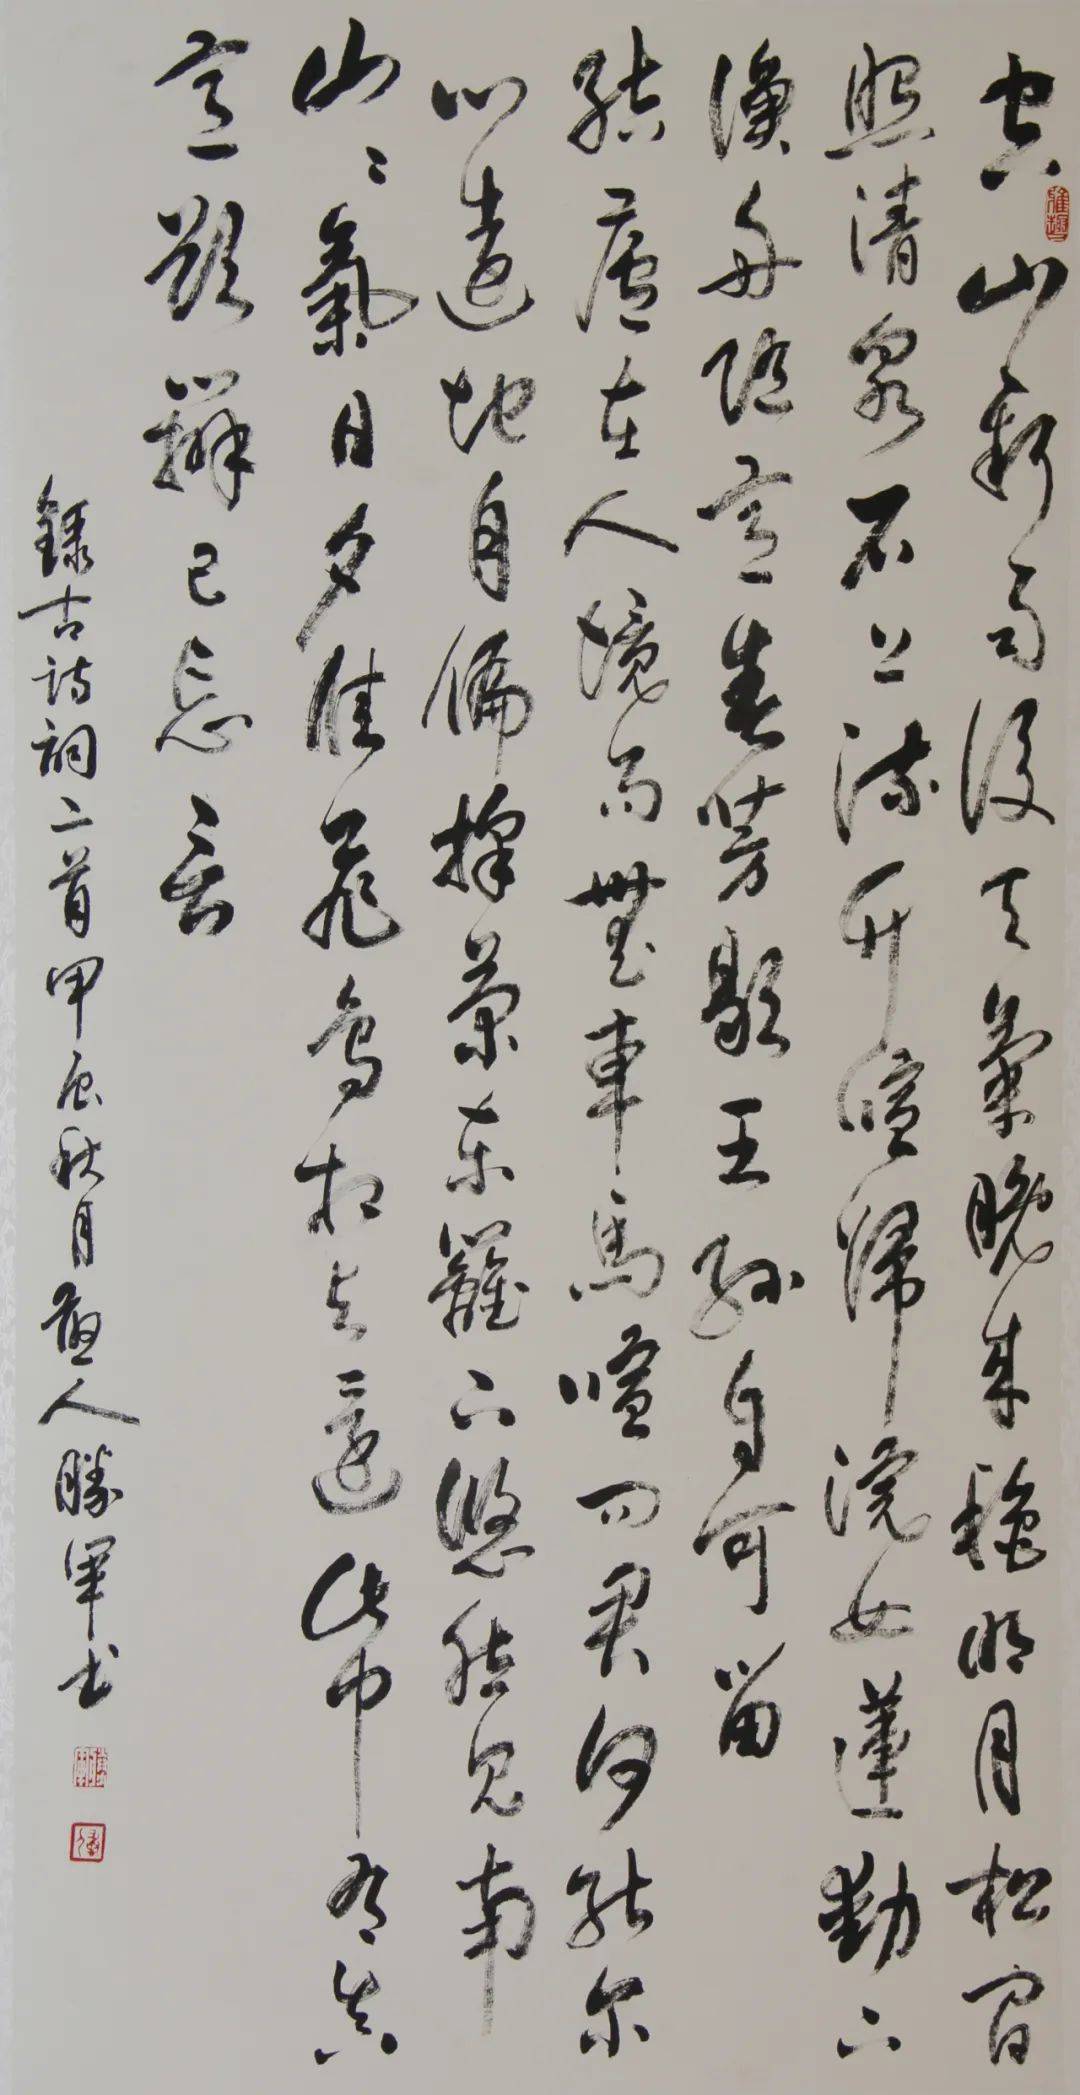 空山新雨後天氣晚来穐明月松間
雅趣
照清泉石上流竹喧歸浣女蓮動下
漁舟隨意春芳歇王孫自可留
結廬在人境而無車馬喧問君何能尔
心遠地自偏採菊東籬下悠然見南
山〻氣日夕佳飛鳥相與還此中有真
意欲辨已忘言
録古诗詞二首甲辰秋月人勝軍书